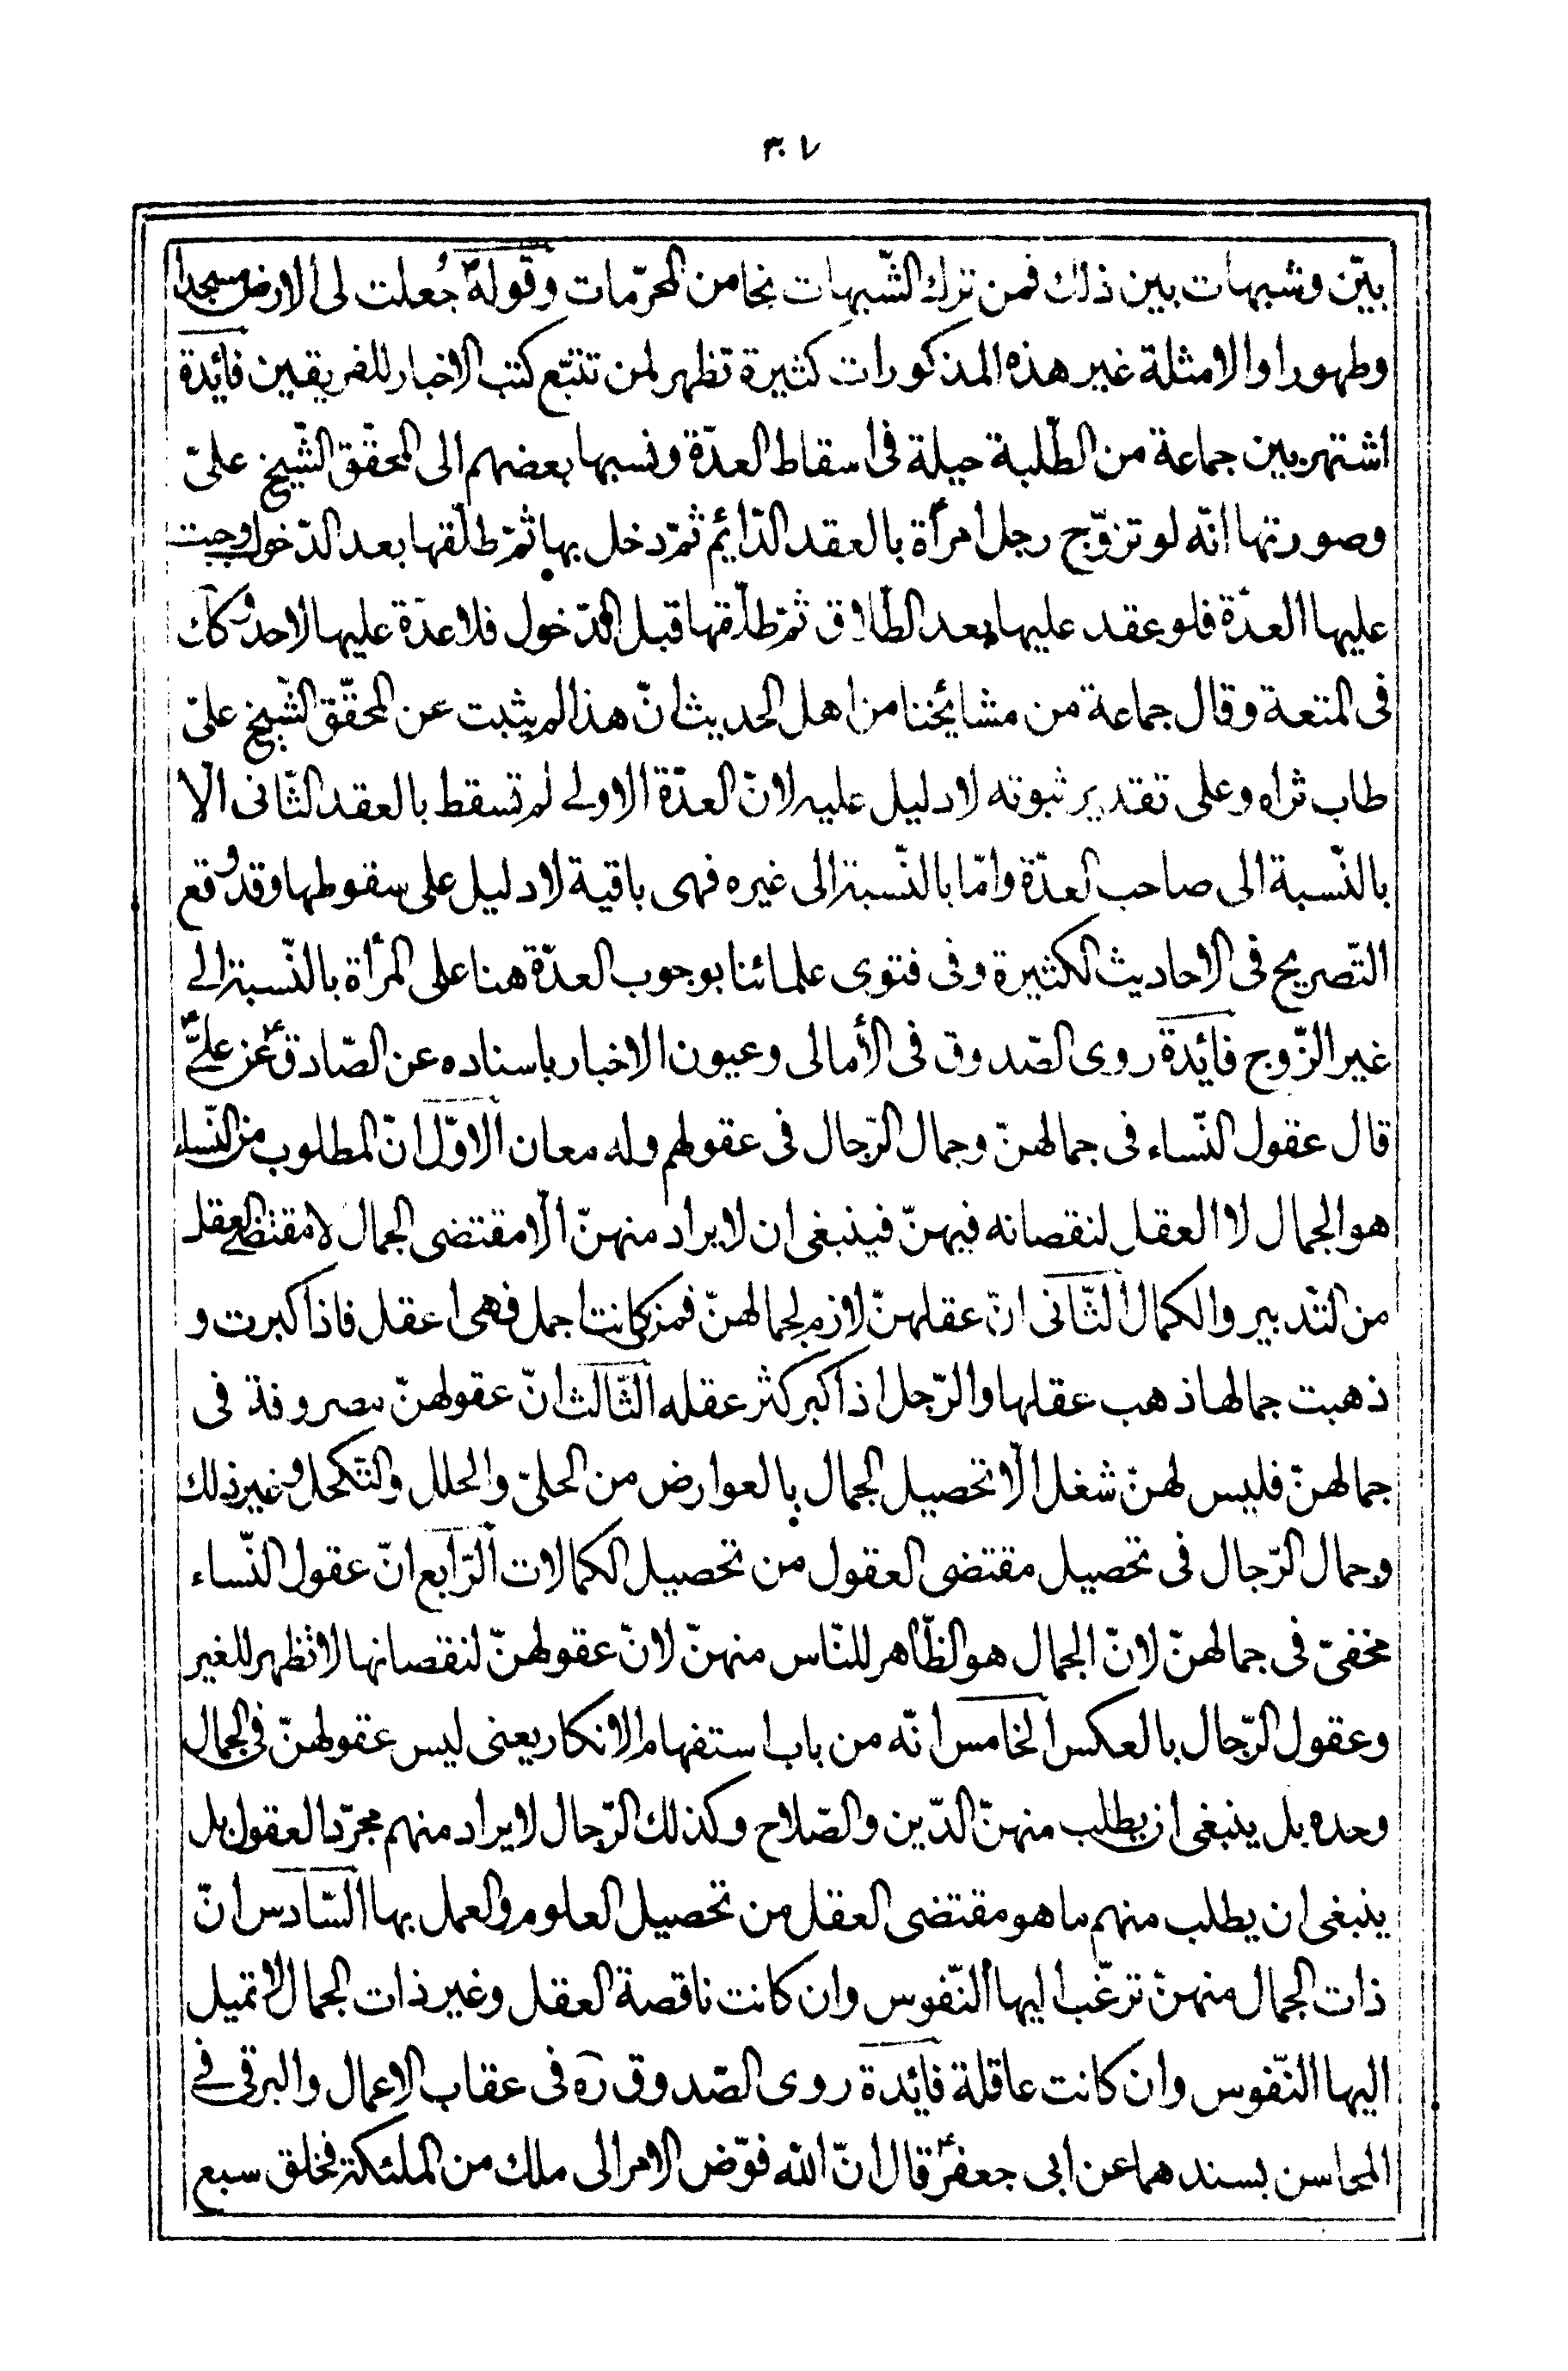 ٣٠٧
بيّن وشبهات بين ذلك فمن ترك الشّبهات نجا من المحرّمات وقوله جُعلت لى الارض مسجدا
وطهورا والامثلة غير هذه المذكورات كثيرة تظهر لمن تتبّع كتب الاخبار للفريقين فائدة
اشتهر بين جماعة من الطّلبة حيلة فى اسقاط العدّة ونسبها بعضهم الى المحقّق الشّيخ علىّ
وصورتها انّه لو تزوّج رجل امرأة بالعقد الدّائم ثمّ دخل بها ثمّ طلّقها بعد الدّخول وجبت
عليها العدّة فلو عقد عليها بعد الطّلاق ثمّ طلّقها قبل الدّخول فلا عدّة عليها لاحد وكك
فى المتعة وقال جماعة من مشائخنا من اهل الحديث انّ هذا لم يثبت عن المحقّق الشّيخ علىّ
طاب ثراه وعلى تقدير ثبوته لا دليل عليه لانّ العدّة الاولى لم تسقط بالعقد الثّانى الّا
بالنّسبة الى صاحب العدّة وامّا بالنّسبة الى غيره فهى باقية لا دليل على سقوطها وقد وقع
التّصريح فى الاحاديث الكثيرة وفى فتوى علمائنا بوجوب العدّة هنا على المرأة بالنّسبة الى
غير الزّوج فائدة روى الصّدوق فى الأمالى وعيون الاخبار باسناده عن الصّادق ع عن علىّ
قال عقول النّساء فى جمالهنّ وجمال الرّجال فى عقولهم وله معان الاوّل انّ المطلوب من النّساء
هو الجمال لا العقل لنقصانه فيهنّ فينبغى ان لا يراد منهنّ الّا مقتضى الجمال لا مقتضى العقل
من التّدبير والكمال الثّانى انّ عقلهنّ لازم لجمالهنّ فمن كانت اجمل فهى اعقل فاذا كبرت و
ذهبت جمالها ذهب عقلها والرّجل اذا كبر كثر عقله الثّالث انّ عقولهنّ مصروفة فى
جمالهنّ فليس لهنّ شغل الّا تحصيل الجمال بالعوارض من الحلىّ والحلل والتّكحل وغير ذلك
وجمال الرّجال فى تحصيل مقتضى العقول من تحصيل الكمالات الرّابع انّ عقول النّساء
مخفىّ فى جمالهنّ لانّ الجمال هو الظّاهر للنّاس منهنّ لانّ عقولهنّ لنقصانها لا تظهر للغير
وعقول الرّجال بالعكس الخامس انّه من باب استفهام الانكار يعنى ليس عقولهنّ فى الجمال
وحده بل ينبغى ان يطلب منهنّ الدّين والصّلاح وكذلك الرّجال لا يراد منهم مجرّد العقول بل
ينبغى ان يطلب منهم ما هو مقتضى العقل من تحصيل العلوم والعمل بها السّادس انّ
ذات الجمال منهنّ ترغّب اليها النّفوس وان كانت ناقصة العقل وغير ذات الجمال لا تميل
اليها النّفوس وان كانت عاقلة فائدة روى الصّدوق ره فى عقاب الاعمال والبرقى فى
المحاسن بسندهما عن ابى جعفر ع قال انّ الله فوّض الامر الى ملك من الملئكة فخلق سبع